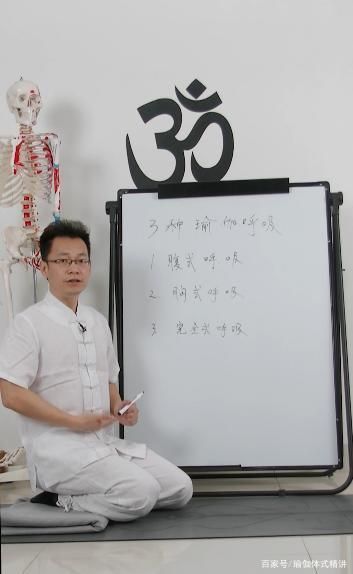 ॐ
3种瑜伽呼吸
1 腹式呼吸
2. 胸式呼吸
3. 完全式呼吸
百家号/瑜伽体式精讲